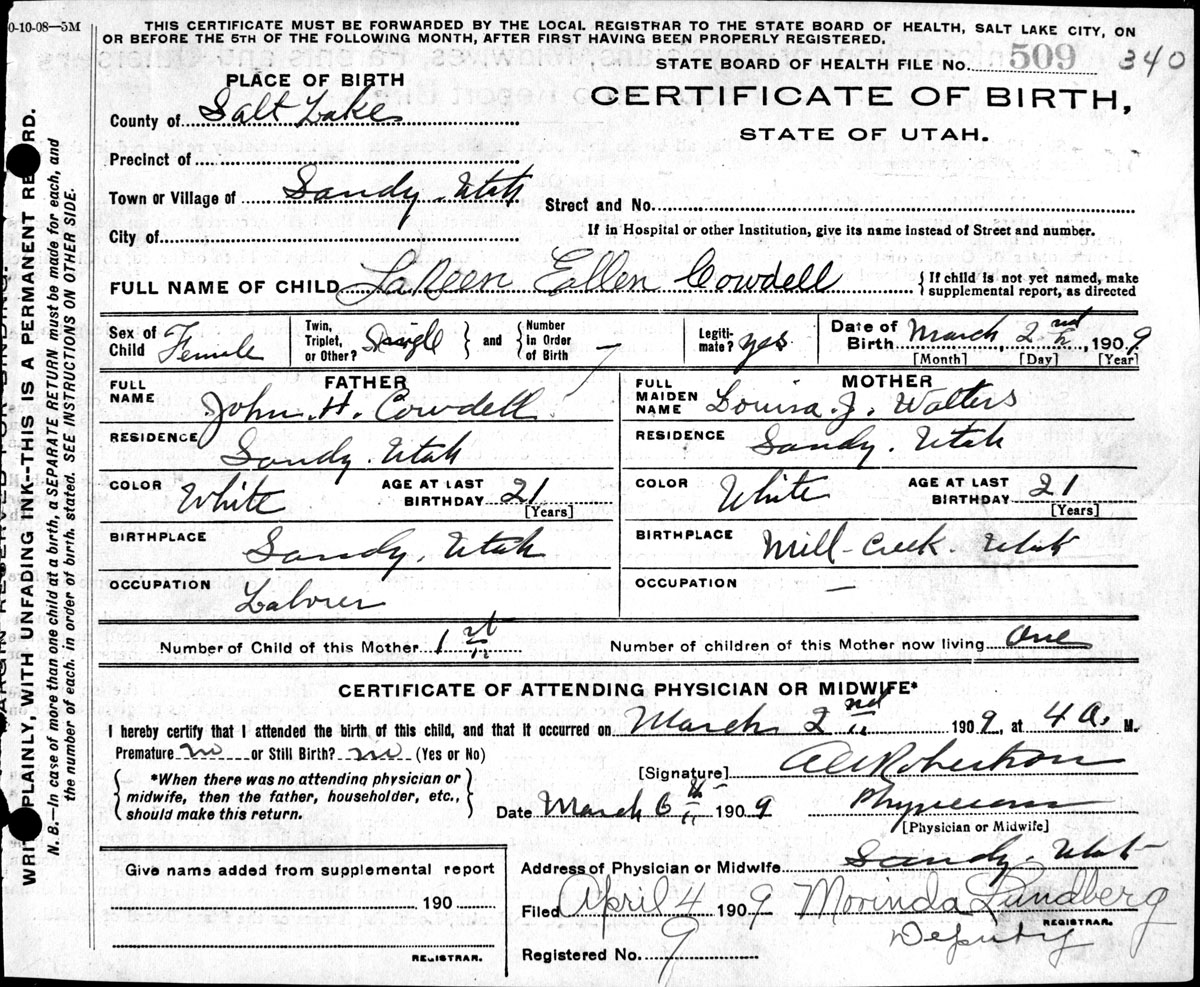 0-10-08—5M
THIS CERTIFICATE MUST BE FORWARDED BY THE LOCAL REGISTRAR TO THE STATE BOARD OF HEALTH, SALT LAKE CITY, ON
OR BEFORE THE 5TH OF THE FOLLOWING MONTH, AFTER FIRST HAVING BEEN PROPERLY REGISTERED.
STATE BOARD OF HEALTH FILE No. 509 340
PLACE OF BIRTH
CERTIFICATE OF BIRTH,
STATE OF UTAH.
County of Salt Lake
Precinct of
Town or Village of Sandy. Utah
Street and No.
City of
If in Hospital or other Institution, give its name instead of Street and number.
FULL NAME OF CHILD LaReen Ellen Cowdell { If child is not yet named, make supplemental report, as directed
Sex of Child Female Twin, Triplet, or Other? Single } and { Number in Order of Birth — Legiti-mate? yes Date of Birth March 2nd 1909
[Month] [Day] [Year]
FATHER
FULL NAME John. H. Cowdell
RESIDENCE Sandy. Utah
COLOR White AGE AT LAST BIRTHDAY 21 [Years]
BIRTHPLACE Sandy. Utah
OCCUPATION Laborer
MOTHER
FULL MAIDEN NAME Louisa. J. Walters
RESIDENCE Sandy. Utah
COLOR White AGE AT LAST BIRTHDAY 21 [Years]
BIRTHPLACE Mill-Creek. Utah
OCCUPATION —
Number of Child of this Mother 1st Number of children of this Mother now living One
CERTIFICATE OF ATTENDING PHYSICIAN OR MIDWIFE*
I hereby certify that I attended the birth of this child, and that it occurred on March 2nd 1909, at 4 a. M.
Premature no or Still Birth? no (Yes or No)
{ *When there was no attending physician or midwife, then the father, householder, etc., should make this return. }
[Signature] Robertson
Date March 6th 1909 Physician
[Physician or Midwife]
Address of Physician or Midwife Sandy. Utah
Filed April 4 1909 Morinda Lundberg
REGISTRAR.
Deputy
Registered No. 9
Give name added from supplemental report
190
REGISTRAR.
WRITE PLAINLY, WITH UNFADING INK--THIS IS A PERMANENT RECORD.
N. B.—In case of more than one child at a birth, a SEPARATE RETURN must be made for each, and
the number of each, in order of birth, stated. SEE INSTRUCTIONS ON OTHER SIDE.